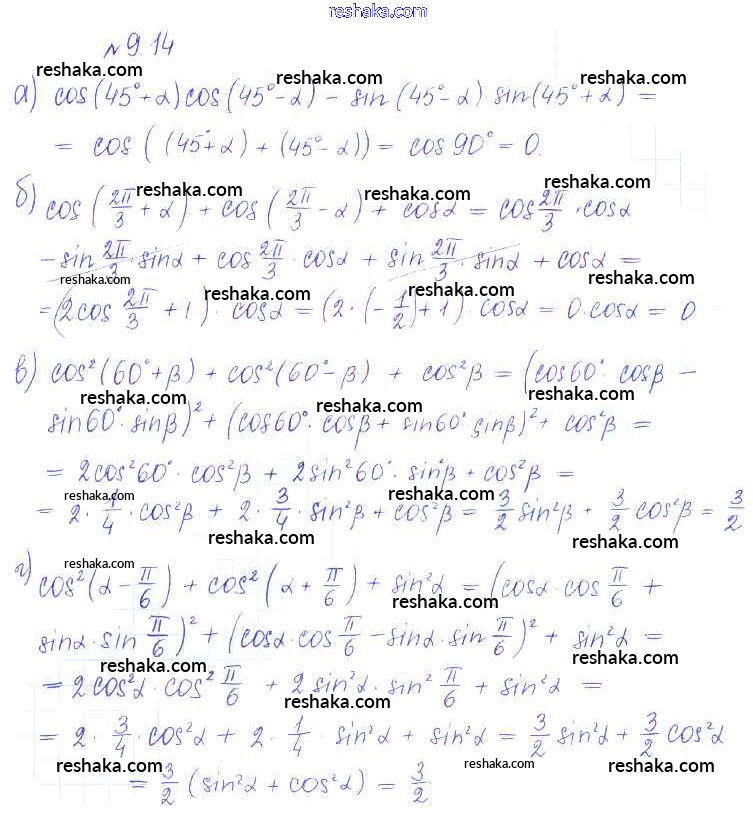 reshaka.com
№ 9.14
reshaka.com reshaka.com reshaka.com
а) cos(45°+α)cos(45°-α) - sin(45°-α)·sin(45°+α) =
= cos((45°+α)+(45°-α)) = cos90° = 0.
reshaka.com reshaka.com reshaka.com
б) cos(2π/3 + α) + cos(2π/3 - α) + cosα = cos 2π/3 · cosα
reshaka.com reshaka.com
- sin 2π/3 · sinα + cos 2π/3 · cosα + sin 2π/3 · sinα + cosα =
reshaka.com reshaka.com
= (2cos 2π/3 + 1) · cosα = (2·(-1/2)+1) · cosα = 0·cosα = 0
reshaka.com
в) cos²(60°+β) + cos²(60°-β) + cos²β = (cos60°·cosβ -
reshaka.com reshaka.com reshaka.com
sin60°·sinβ)² + (cos60°·cosβ + sin60°·sinβ)² + cos²β =
= 2cos²60°·cos²β + 2sin²60°·sin²β + cos²β =
reshaka.com reshaka.com
= 2·1/4·cos²β + 2·3/4·sin²β + cos²β = 3/2 sin²β + 3/2 cos²β = 3/2
reshaka.com
reshaka.com
г) cos²(α - π/6) + cos²(α + π/6) + sin²α = (cosα·cos π/6 +
reshaka.com
sinα·sin π/6)² + (cosα·cos π/6 - sinα·sin π/6)² + sin²α =
reshaka.com reshaka.com
= 2cos²α·cos² π/6 + 2sin²α·sin² π/6 + sin²α =
reshaka.com
= 2·3/4·cos²α + 2·1/4·sin²α + sin²α = 3/2 sin²α + 3/2 cos²α
reshaka.com reshaka.com reshaka.com
= 3/2 (sin²α + cos²α) = 3/2.